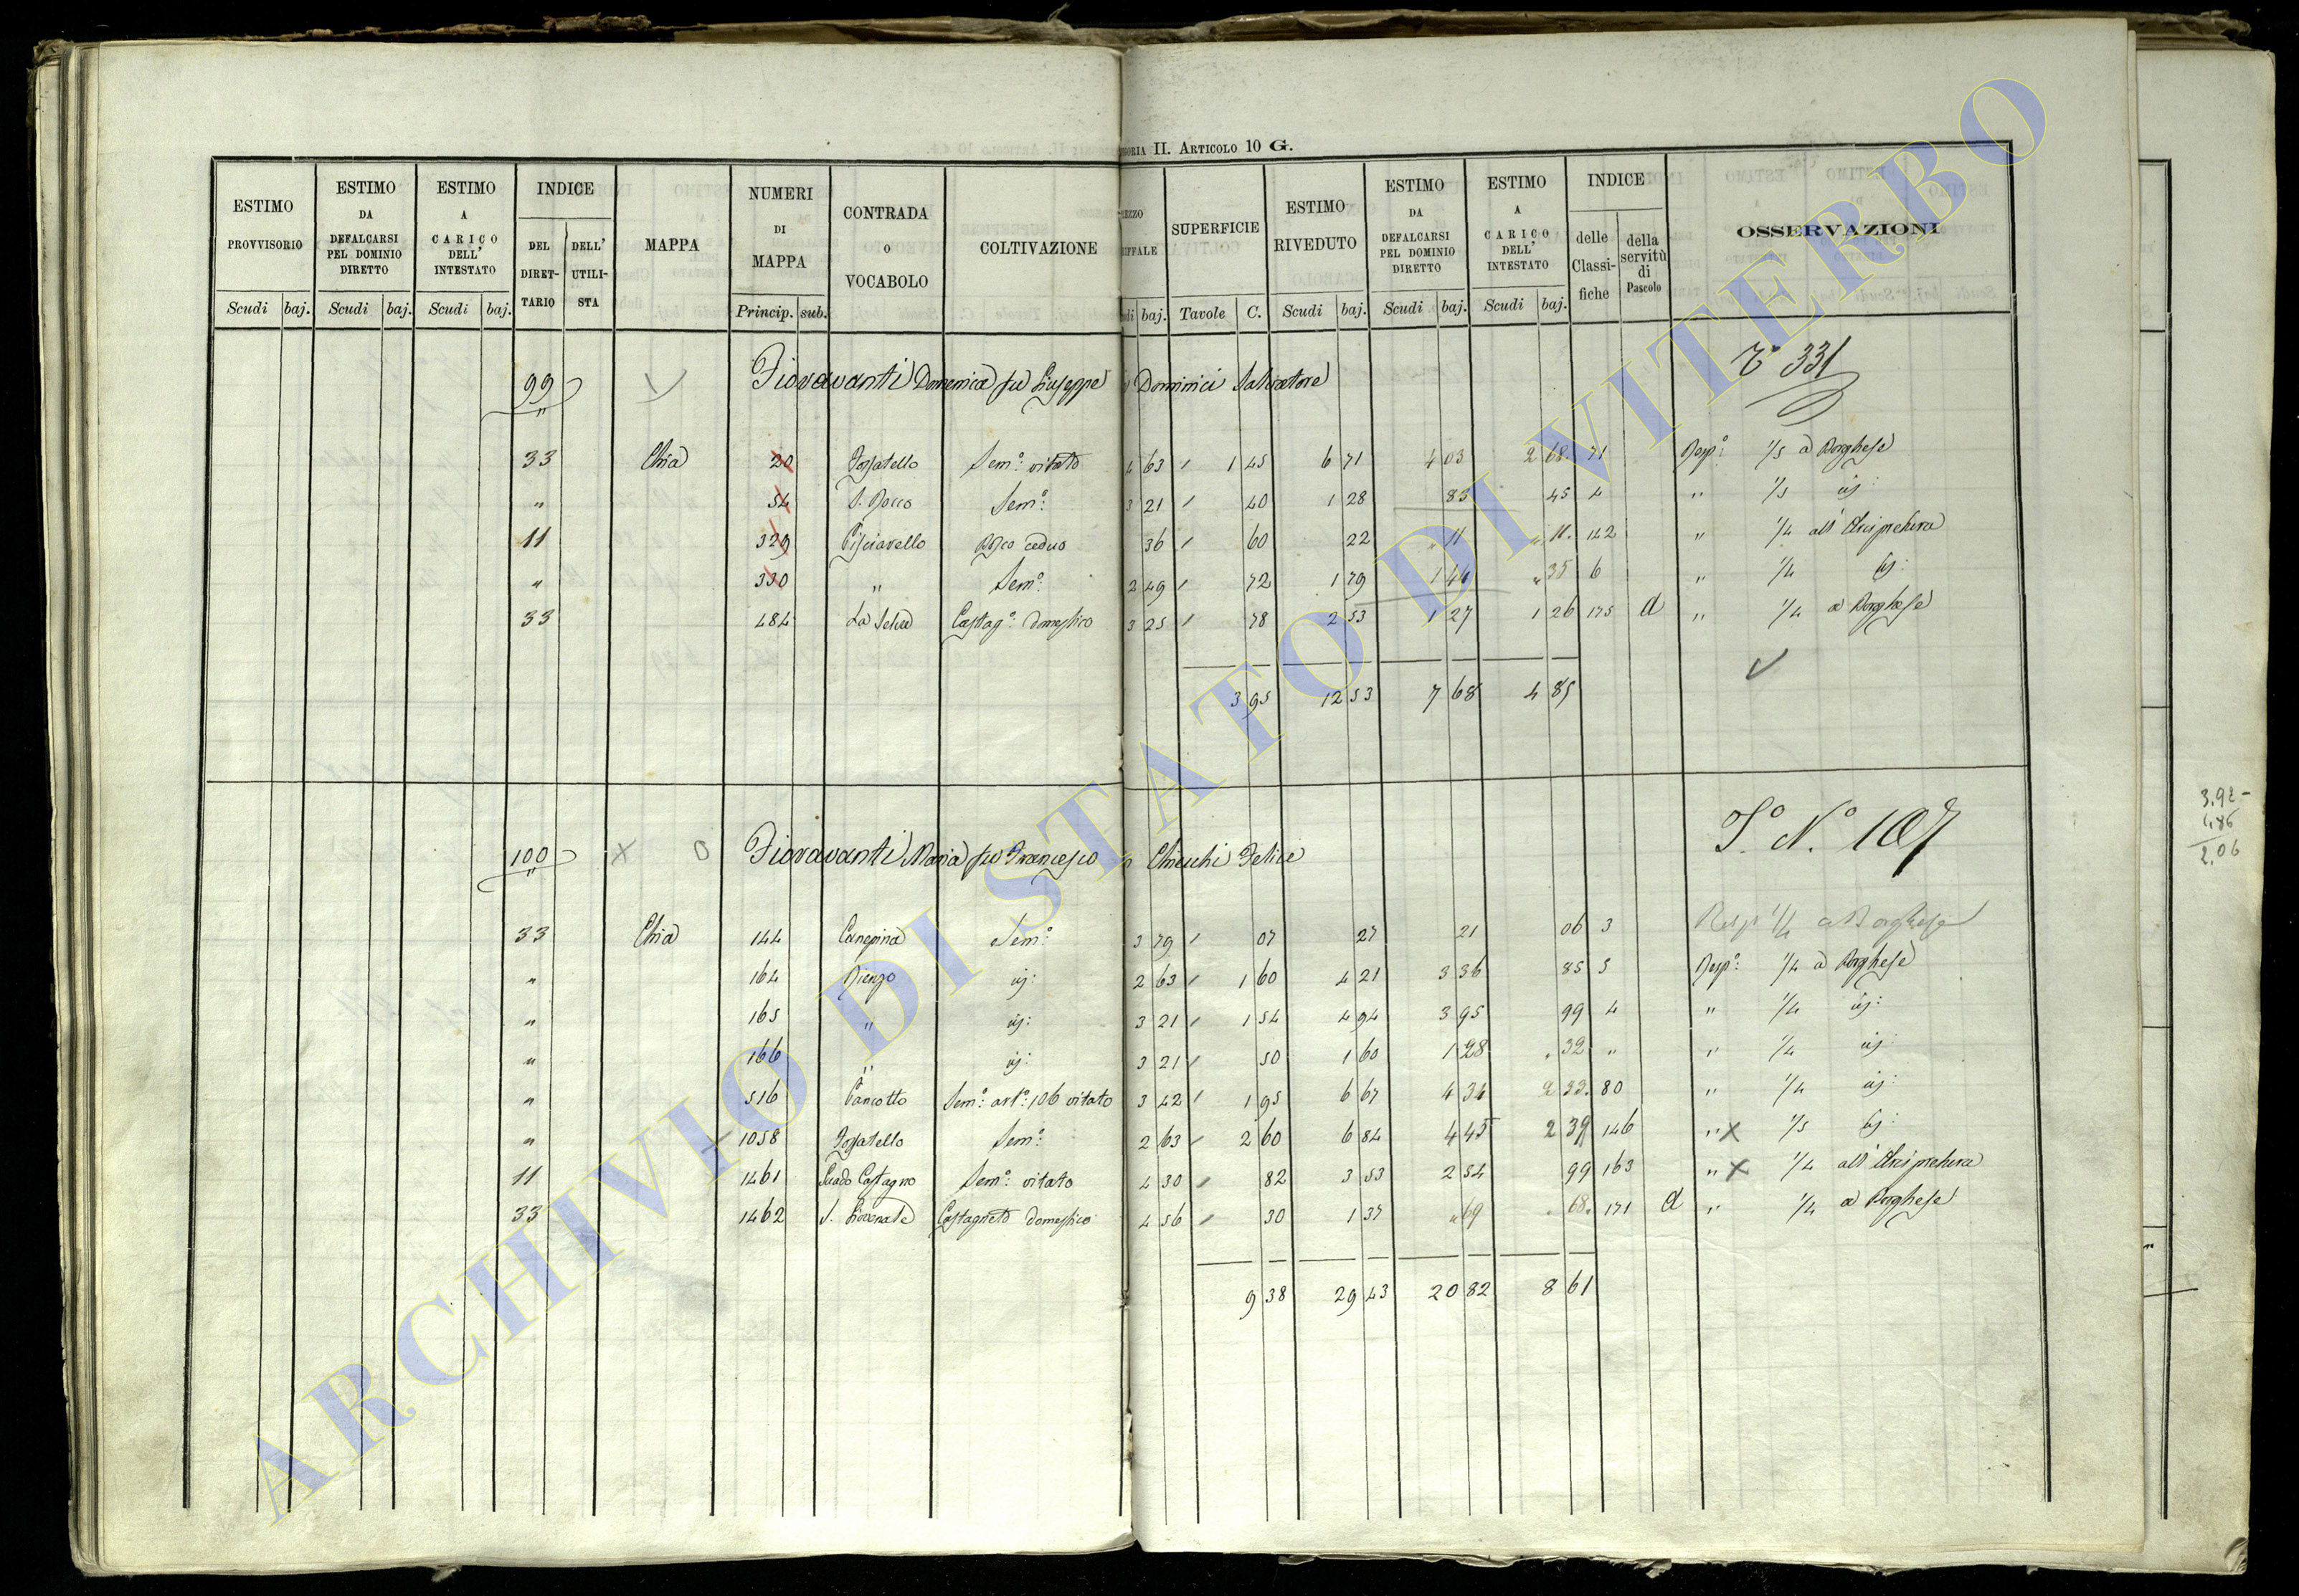 ORIA II. ARTICOLO 10 G.
ESTIMO PROVVISORIO Scudi baj. ESTIMO DA DEFALCARSI PEL DOMINIO DIRETTO Scudi baj. ESTIMO A CARICO DELL' INTESTATO Scudi baj. INDICE DEL DIRET-TARIO DELL' UTILI-STA MAPPA NUMERI DI MAPPA Princip. sub. CONTRADA o VOCABOLO COLTIVAZIONE baj. SUPERFICIE Tavole C. ESTIMO RIVEDUTO Scudi baj. ESTIMO DA DEFALCARSI PEL DOMINIO DIRETTO Scudi baj. ESTIMO A CARICO DELL' INTESTATO Scudi baj. INDICE delle Classi-fiche della servitù di Pascolo OSSERVAZIONI
99 Fioravanti Domenica fu Giuseppe in Dominici Salvatore 331
33 Chia 20 Fossatello Sem.º vitato 4 63 1 45 6 71 4 03 2 68 71 Resp.º 1/5 a Borghese
" 54 S. Rocco Sem.º 3 21 40 1 28 83 45 4 " 1/5 id:
11 329 Pisciarello Bosco ceduo 36 60 22 " 11 " 11 142 " 1/4 all' Arcipretura
" 330 " Sem.º 2 49 72 1 79 1 44 " 35 6 " 1/4 id:
33 484 La Selva Castag.º domestico 3 25 78 2 53 1 27 1 26 175 a " 1/4 a Borghese
3 95 12 53 7 68 4 85
3.92-
4.86
2.06
100 X O Fioravanti Maria fu Francesco in Chiecchi Felice T.º N.º 107
Resp 1/4 a Borghese
33 Chia 144 Canepina Sem.º 3 79 07 27 21 06 3
" 164 Rienzo id: 2 63 1 60 4 21 3 36 85 5 Resp.º 1/4 a Borghese
" 165 " id: 3 21 1 54 4 94 3 95 99 4 " 1/4 id:
" 166 " id: 3 21 50 1 60 1 28 " 32 " " 1/4 id:
" 516 Pancotto Sem.º art.º 106 vitato 3 42 1 95 6 67 4 34 2 33 80 " 1/4 id:
" 1058 Fossatello Sem.º 2 63 2 60 6 84 4 45 2 39 146 " X 1/5 id:
11 1461 Castagno Sem.º vitato 4 30 82 3 53 2 54 99 163 " X 1/4 all' Arcipretura
33 1462 S. Giovenale Castagneto domestico 4 56 30 1 37 " 69 " 68 171 a " 1/4 a Borghese
9 38 29 43 20 82 8 61
ARCHIVIO DI STATO DI VITERBO